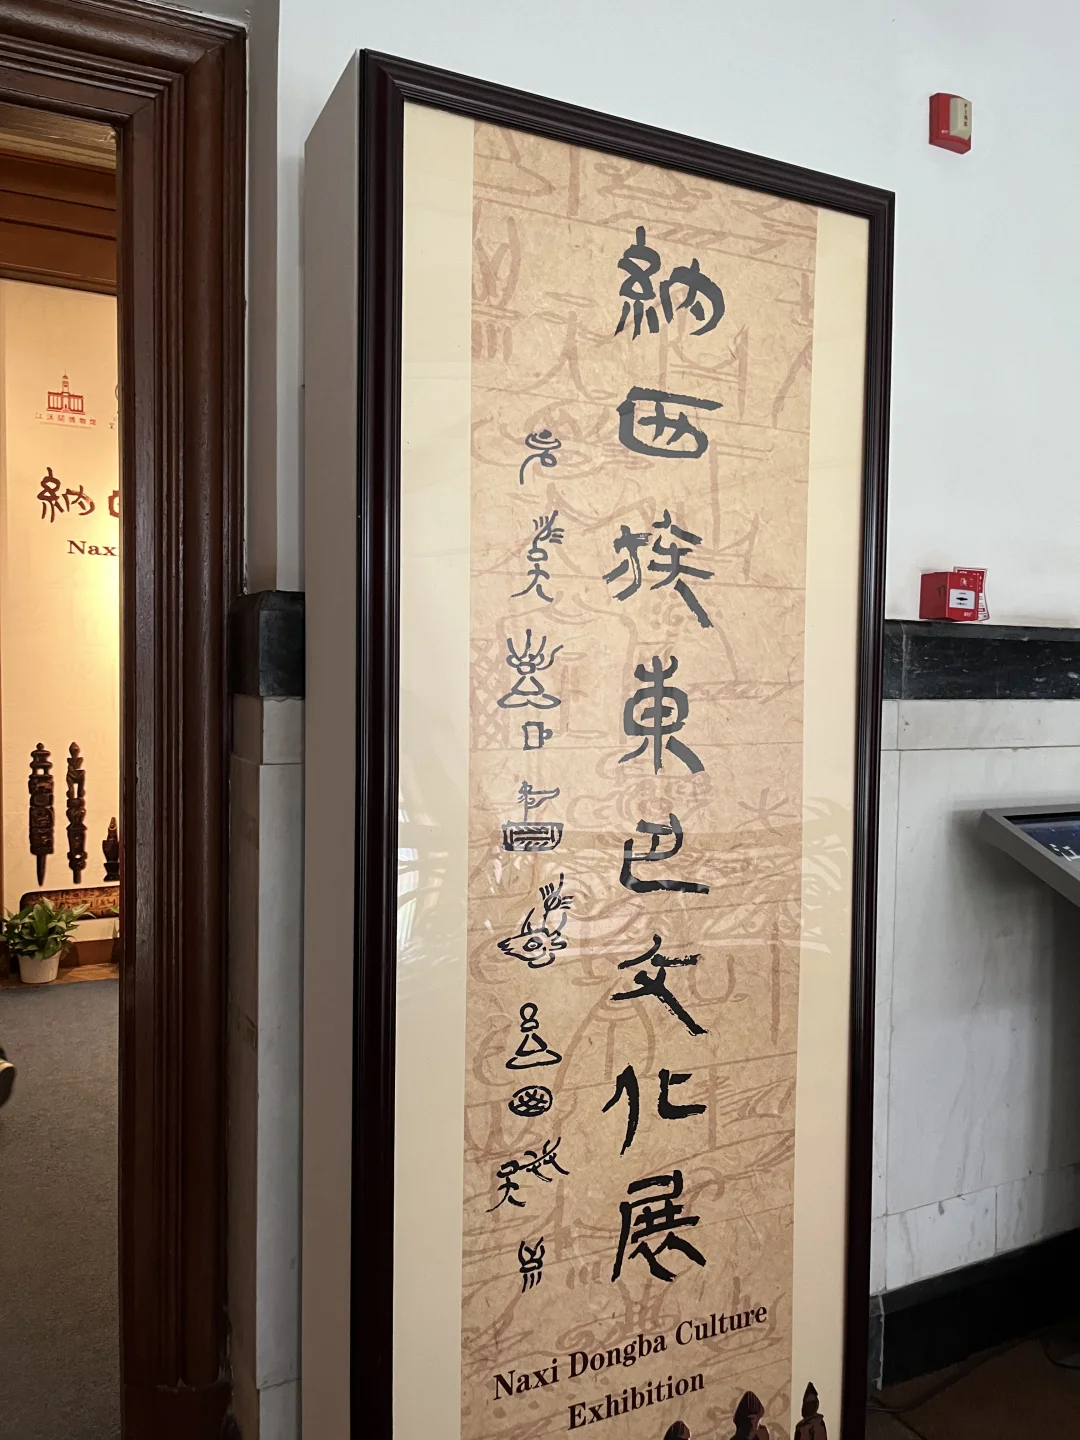 納西族東巴文化展
Naxi Dongba Culture
Exhibition
江汉关博物馆
納
Nax